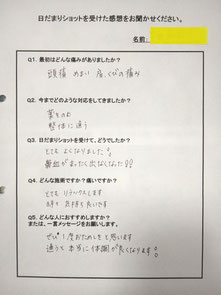 日だまりショットを受けた感想をお聞かせください。
名前
Q1. 最初はどんな痛みがありましたか？
頭痛 めまい 肩、くびの痛み
Q2. 今までどのような対応をしてきましたか？
薬をのむ
整体に通う
Q3. 日だまりショットを受けて、どうでしたか？
とても よくなりました
鼻血がまったく出なくなった!!
Q4. どんな施術ですか？痛いですか？
とても リラックスします
気持ち良いです
Q5. どんな人におすすめしますか？
または、一言メッセージをお願いします。
ぜひ1度おためしをと思います
通うと本当に体調が良くなります!